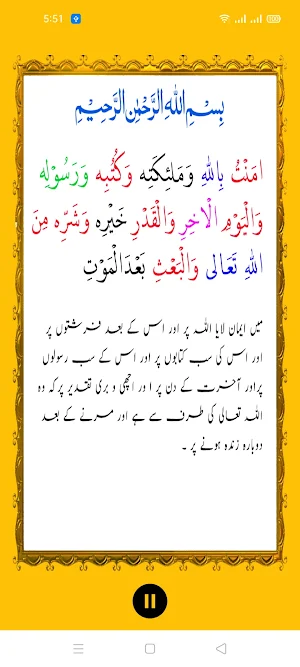 5:51
بِسْمِ اللهِ الرَّحْمٰنِ الرَّحِيْمِ
اٰمَنْتُ بِاللهِ وَمَلٰئِكَتِه وَكُتُبِه وَرَسُوْلِه
وَالْيَوْمِ الْاٰخِرِ وَالْقَدْرِ خَيْرِه وَشَرِّه مِنَ
اللهِ تَعَالٰى وَالْبَعْثِ بَعْدَ الْمَوْتِ
میں ایمان لایا اللہ پر اور اس کے بعد فرشتوں پر
اور اس کی سب کتابوں پر اور اس کے سب رسولوں
پر اور آخرت کے دن پر ا ور اچھی و بری تقدیر پر کہ وہ
اللہ تعالی کی طرف سے ہے اور مرنے کے بعد
دوبارہ زندہ ہونے پر ۔